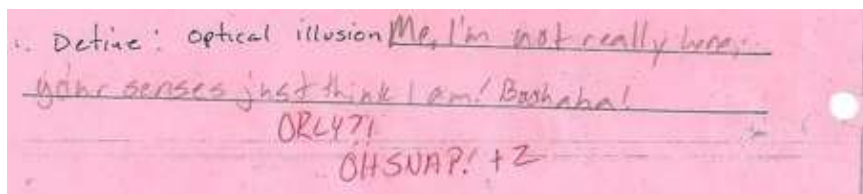 1. Define: optical illusion Me, I'm not really here,
your senses just think I am! Bashaha!
ORLY?!
OH SNAP! +2